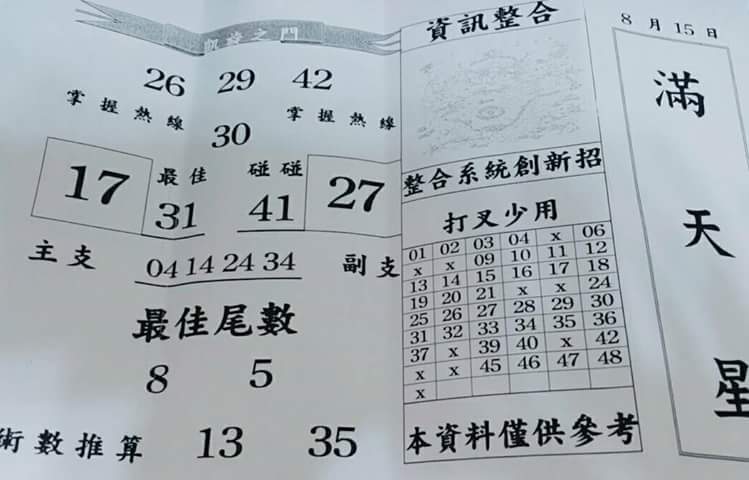 之門
26 29 42
掌握熱線 掌握熱線
30
17 最佳 碰碰 27
31 41
主支 04 14 24 34 副支
最佳尾數
8 5
術數推算 13 35
資訊整合
整合系統創新招
打叉少用
01 02 03 04 x 06
x x 09 10 11 12
13 14 15 16 17 18
19 20 21 x x 24
25 26 27 28 29 30
31 32 33 34 35 36
37 x 39 40 x 42
x x 45 46 47 48
x
本資料僅供參考
8月15日
滿天星